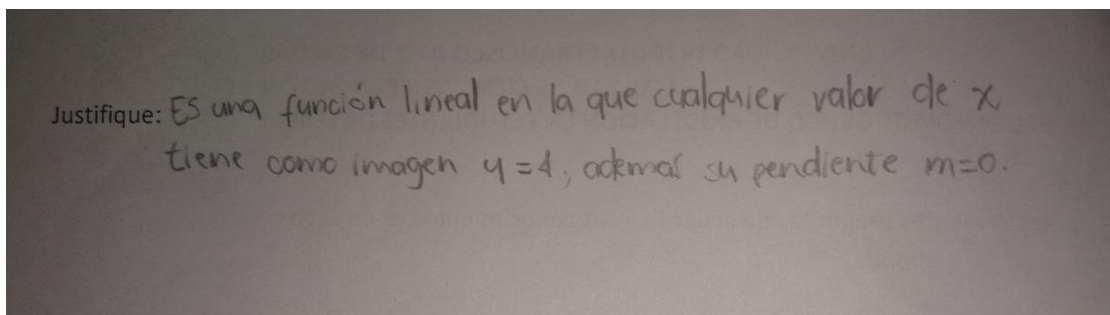 Justifique: Es una función lineal en la que cualquier valor de x
tiene como imagen y=4, ademas su pendiente m=0.